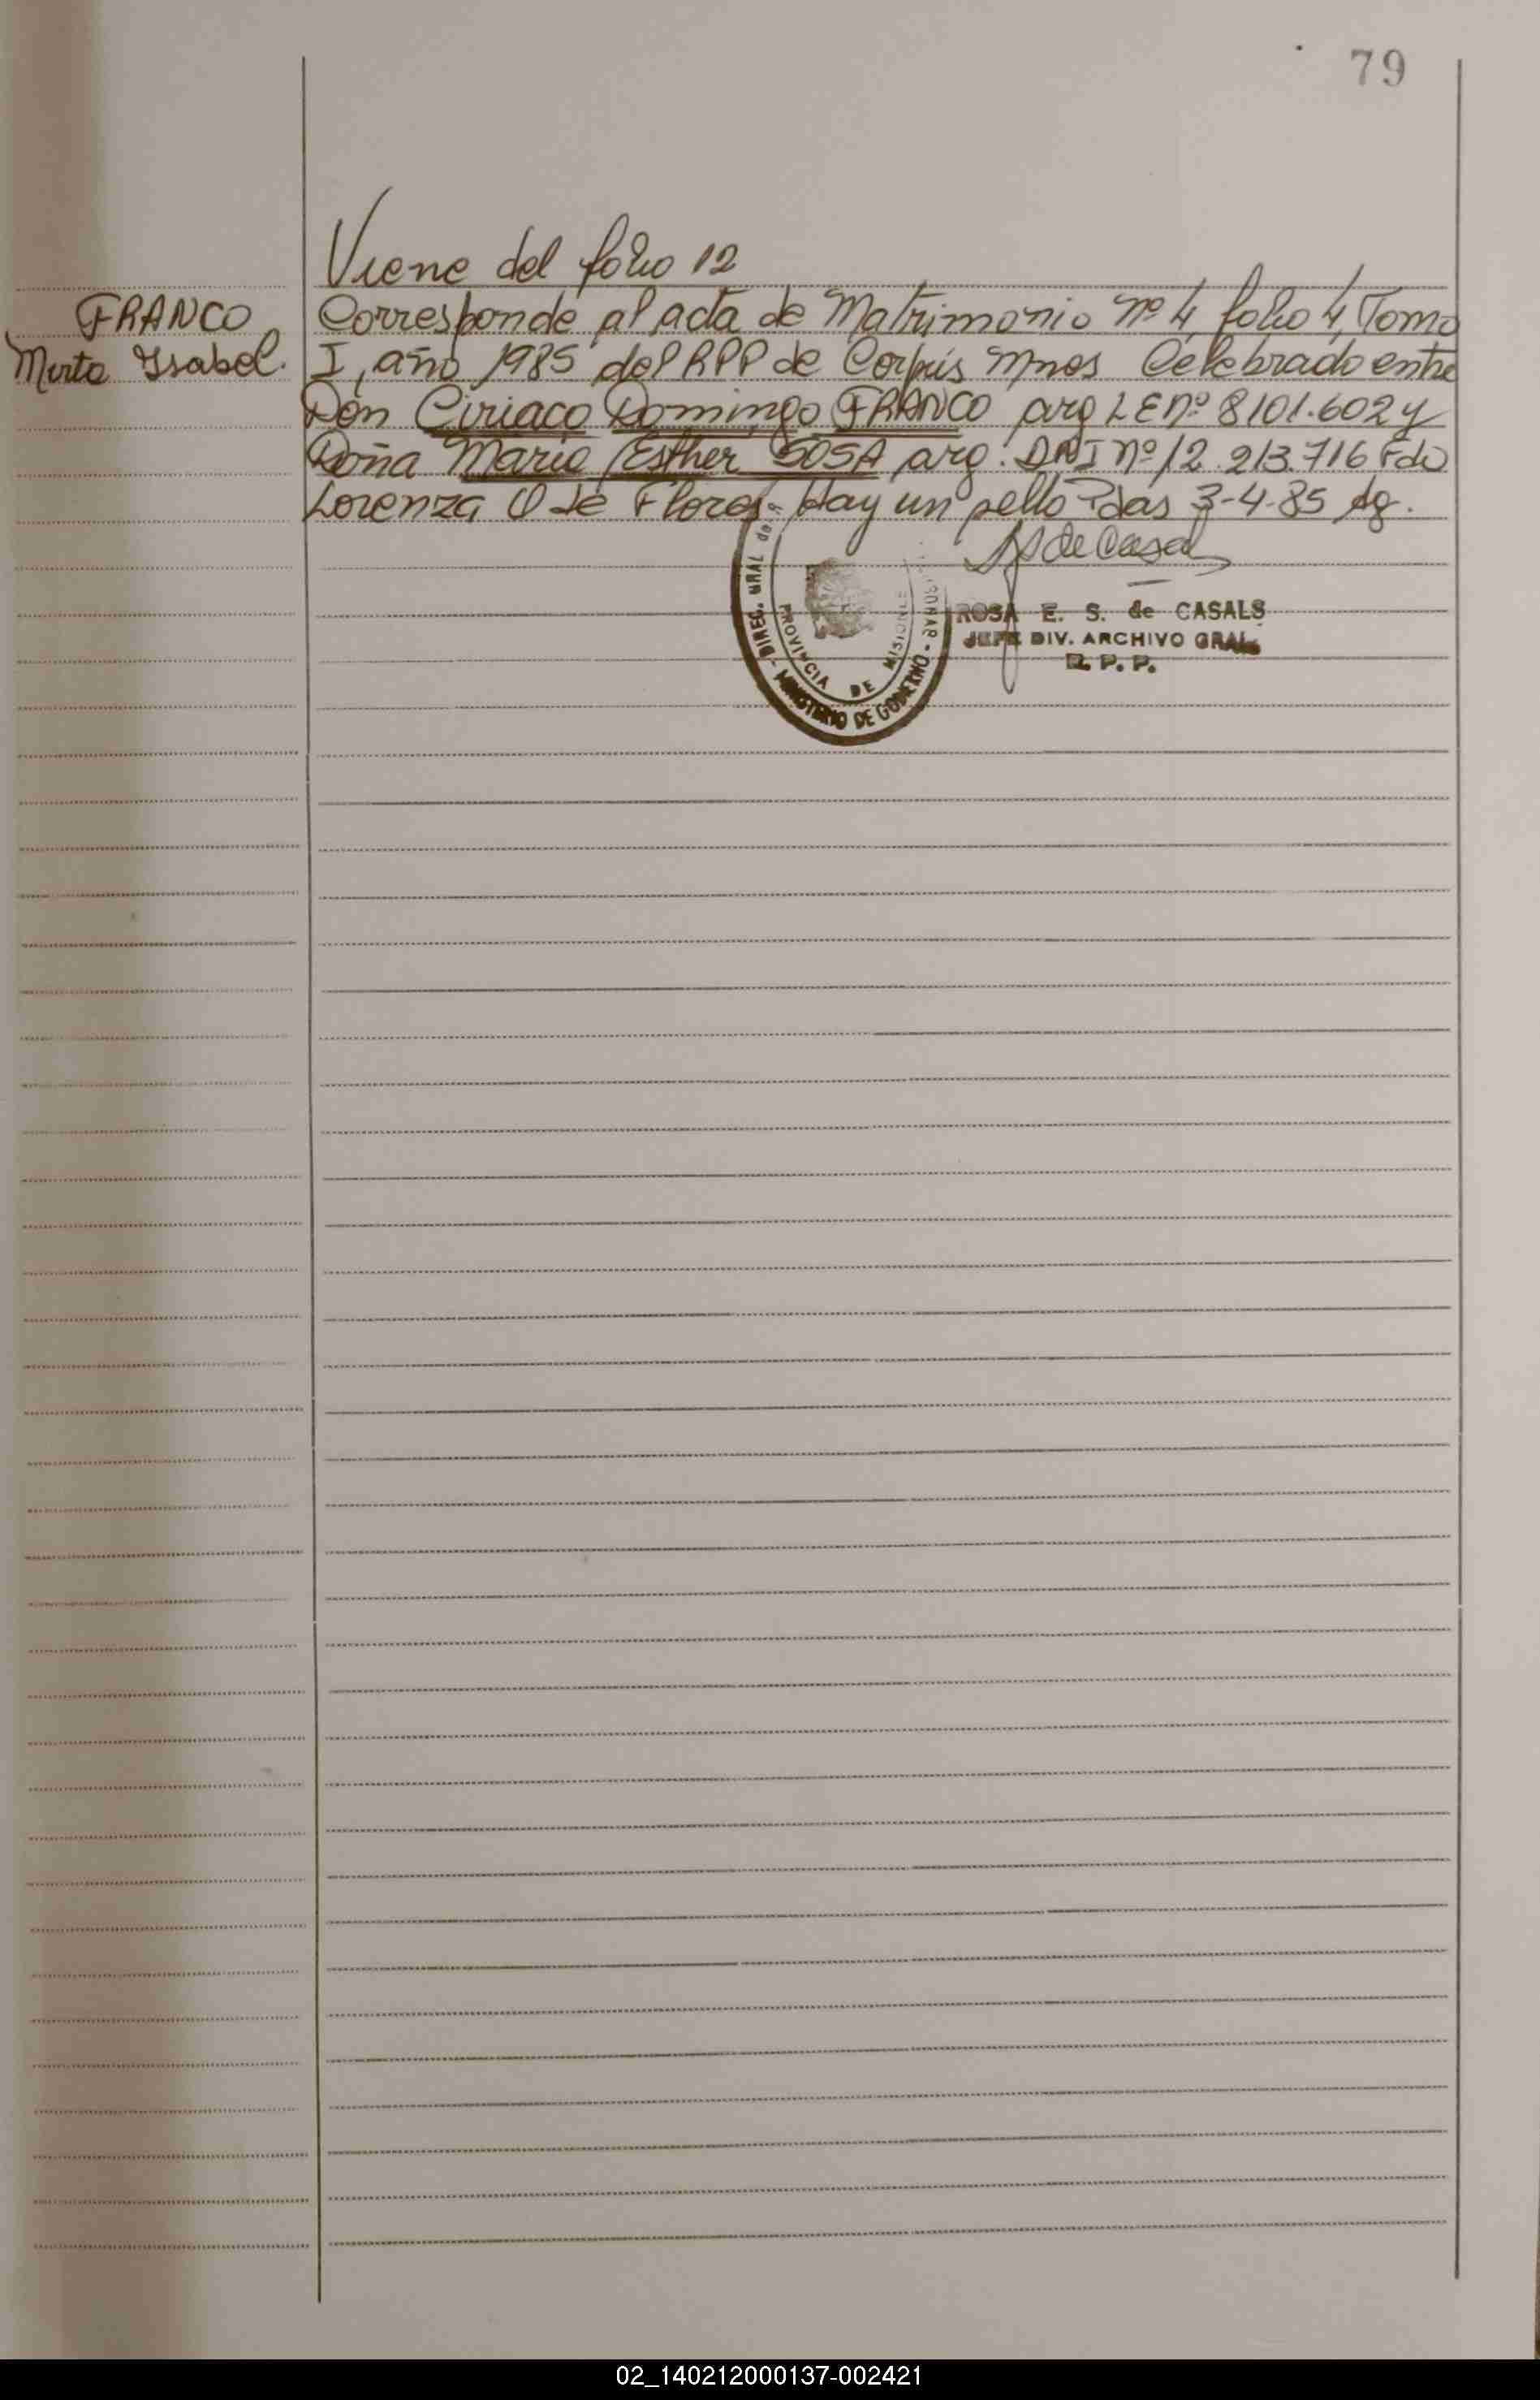 79
Viene del folio 12
FRANCO
Mirta Isabel.
Corresponde al acta de Matrimonio nº 4, folio 4, Tomo
I, año 1985 del RPP de Corpus Mnes Celebrado entre
Don Ciriaco Domingo FRANCO arg LE nº 8101.602 y
Doña Maria Esther SOSA arg. DNI nº 12.213.716 Fdo
Lorenza O de Flores. Hay un sello Pdas 3-4-85 Ag.
de Casals
DIREC. GRAL de
MINISTERIO DE GOBIERNO
PROVINCIA DE MISIONES
ROSA E. S. de CASALS
JEFE DIV. ARCHIVO GRAL.
R. P. P.
02_140212000137-002421